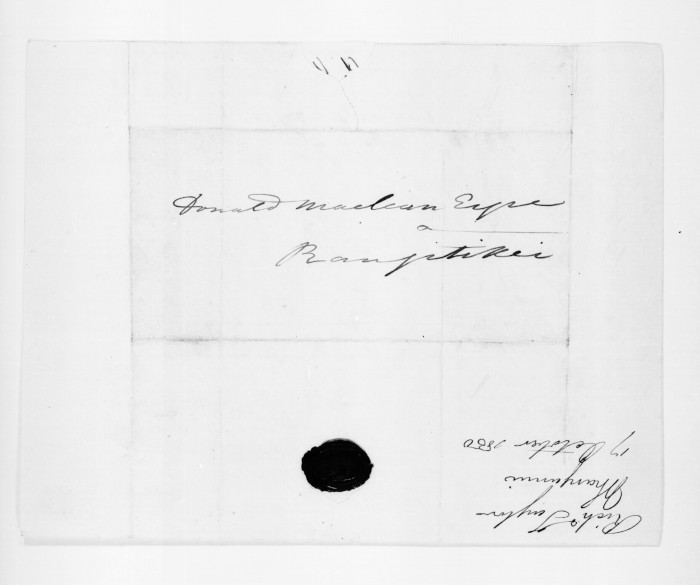 Donald Maclean Esqre
a
Rangitikei
Richd Taylor
Whanganui
17 October 1850